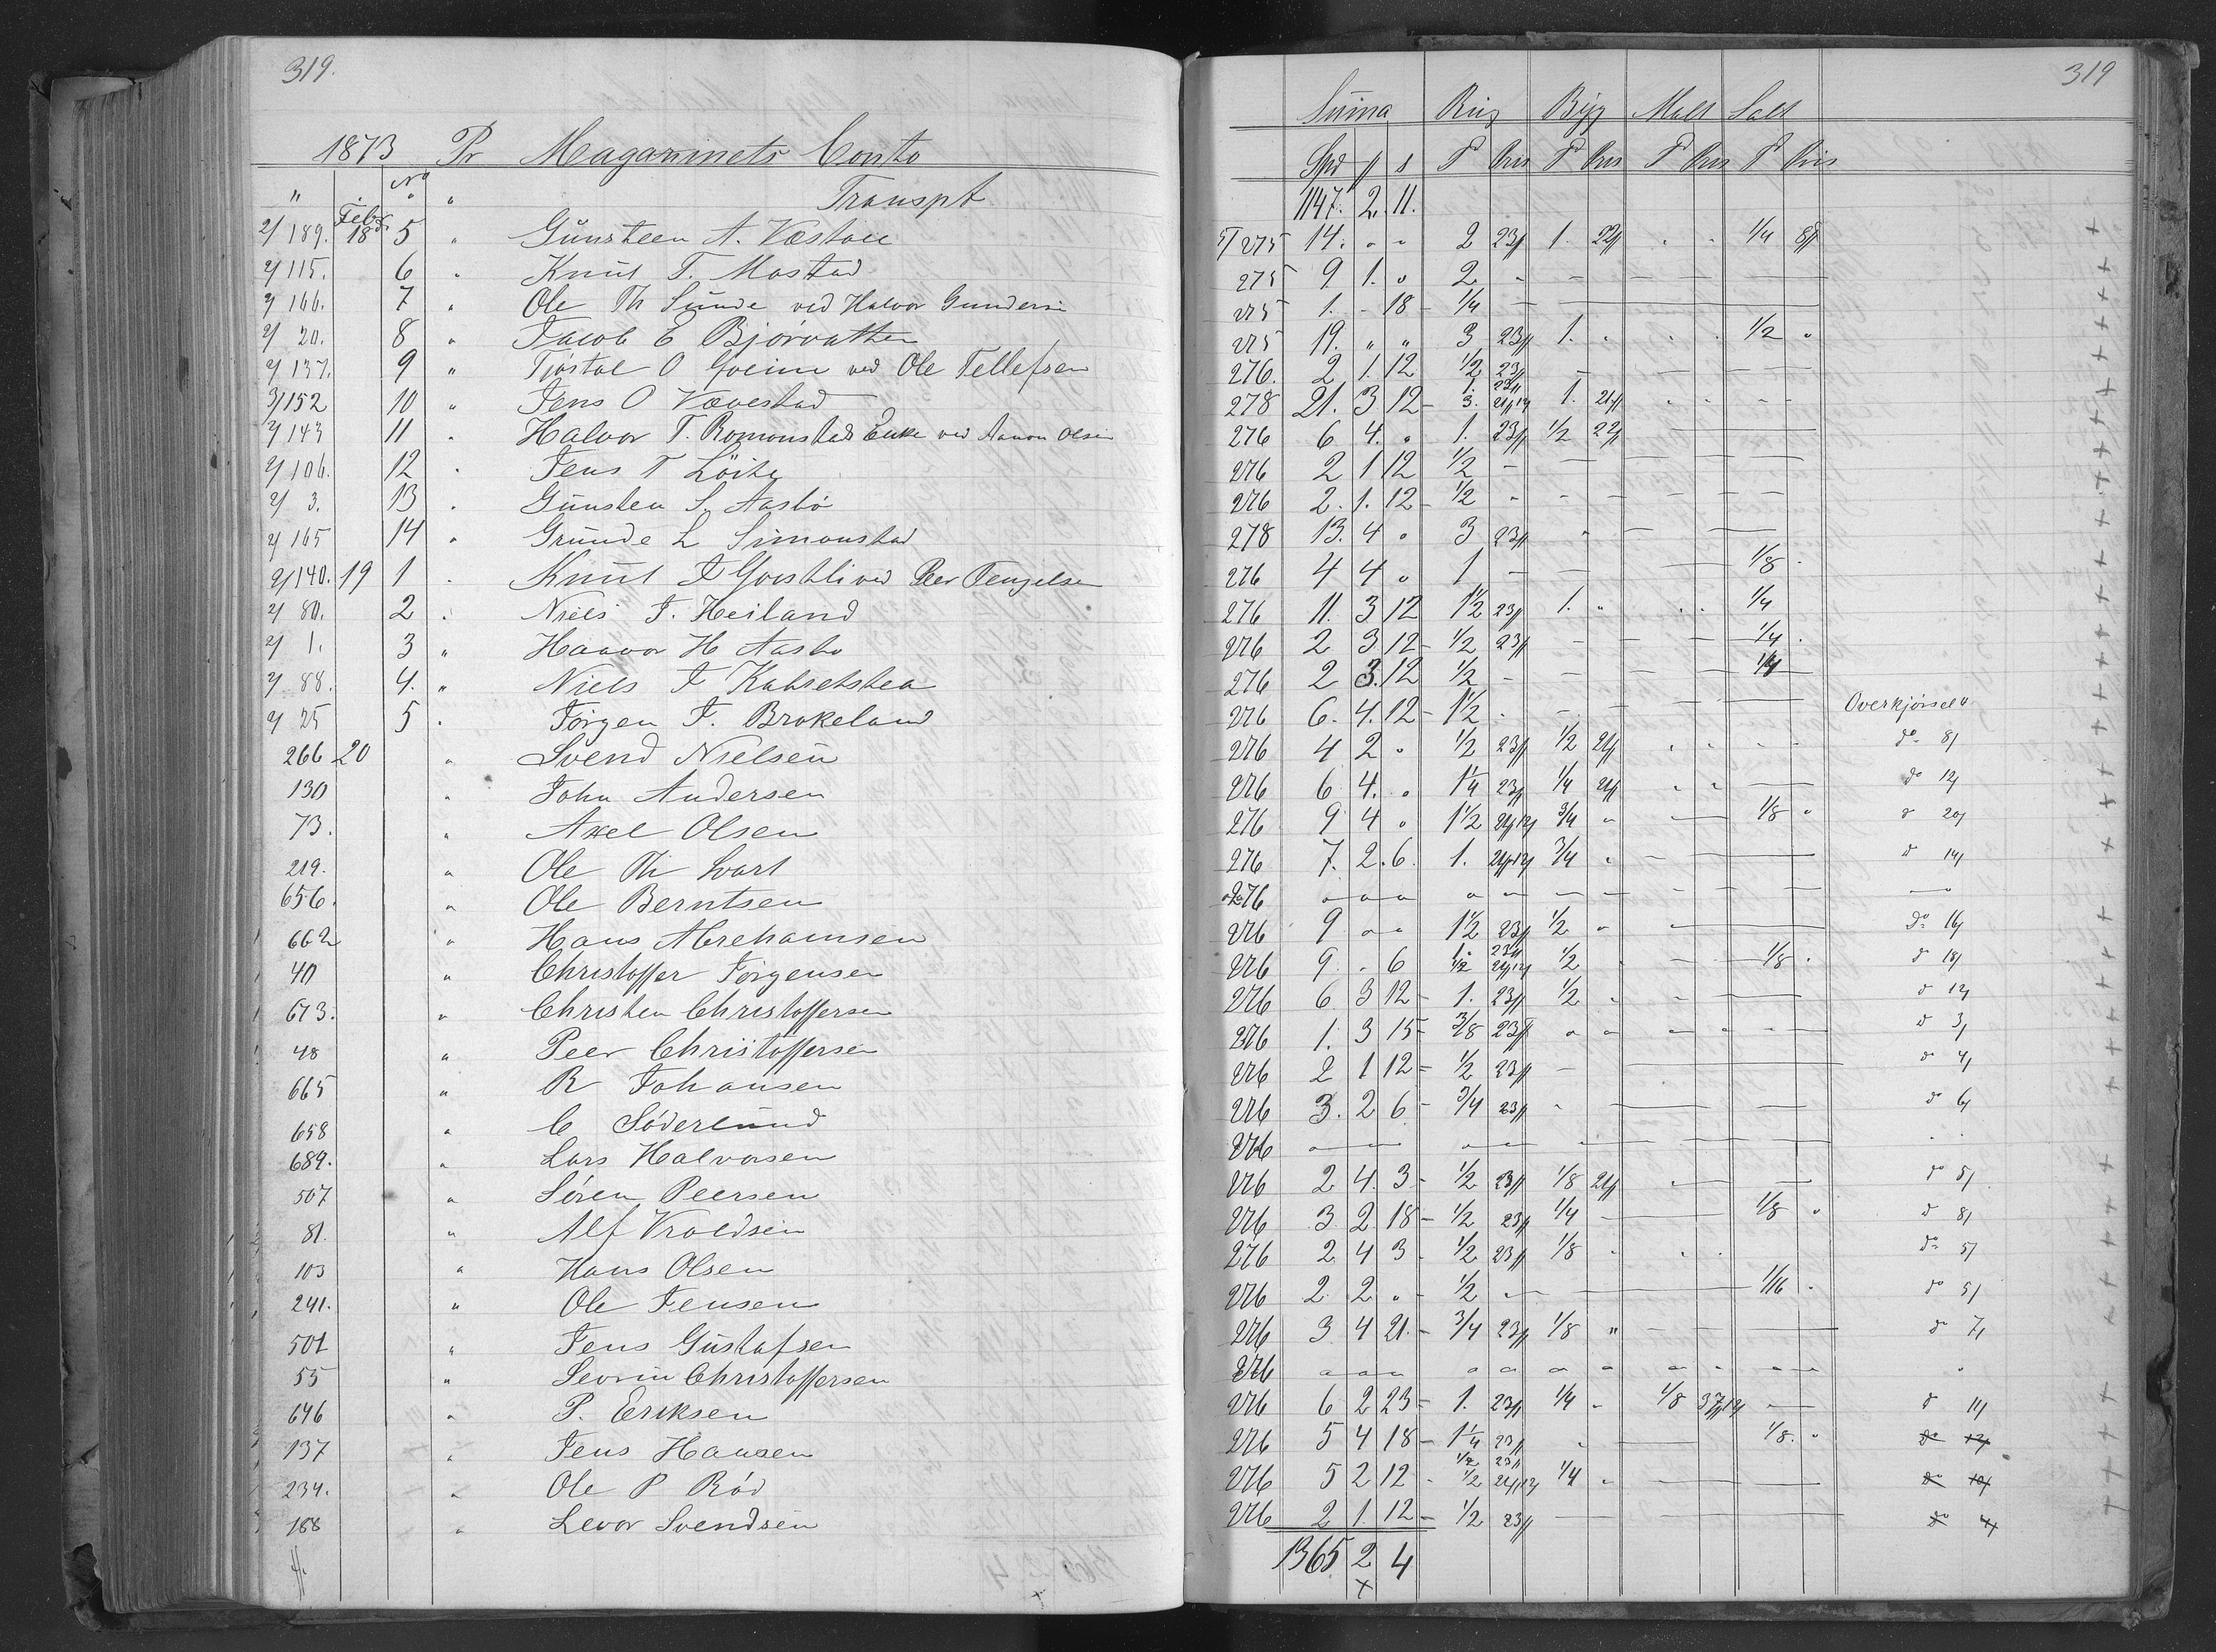 319.
319
1873 Pr Magazinets Conto
Suma Rug Byg Malt Salt
Spd ƒ s T Pris T Pris T Pris T Pris
" " No " " Transpt 1147. 2. 11.
2/189. Febr 18de 5 " Günsteen A. Væstøll 5/275 14. " " 2 23ƒ 1. 22ƒ " " 1/4 8ƒ
2/115. 6 " Knut T. Mostad 275 9 1. " 2 "
2/166. 7 " Ole Th Sunde ved Halvor Gunders 275 1. - 18 1/4
2/20. 8 " Jacob E Bjørvatten 275 19. " " 3 23ƒ 1. " " " 1/2 "
2/137. 9 " Tjøstol O ved Ole Tellefsen 276. 2 1. 12 1/2 23ƒ
3/152 10 " Jens O Vævestad 278 21. 3 12 - 1. 23 3. 1. 21ƒ
2/143 11 " Halvor T. Romonstads Enke ved Aanon Olsen 276 6 4. " 1. 23ƒ 1/2 22ƒ
2/106. 12 " Jens T 276 2 1 12 1/2 -
2/3. 13 " Günsten S. Aasbø 276 2. 1. 12 - 1/2 "
2/165 14 " Grunde L Simonstad 278 13. 4 " 3 23ƒ
2/140. 19 1 " Knut J ved Peer Tengelsen 276 4 4 " 1 - 1/8 "
2/80. 2 " Niels J. Heiland 276 11. 3 12 1 1/2 23ƒ 1. " " " 1/4
2/1. 3 " Haavor H Aasbø 276 2 3 12 - 1/2 23ƒ 1/4 "
2/88. 4. " Niels J 276 2 3. 12 1/2 - 1/4
2/25 5 " Jørgen J. Brokeland 276 6. 4. 12 - 1 1/2 " Overkjørsel "
266 20 " Svend Nielsen 276 4 2 " 1/2 23ƒ 1/2 21ƒ do 8/
130 " John Andersen 276 6 4. " 1 1/4 23ƒ 1/4 21ƒ do 12/
73. " Axel Olsen 276 9 4 " 1 1/2 3/4 " 1/8 " d 20/
219. " Ole Th Svart 276 7. 2. 6. 1. 3/4 " d 14/
656. " Ole Berntsen 276 " " "
662 " Hans Abrehamsen 276 9 " " 1 1/2 23ƒ 1/2 " do 16/
40 " Christoffer Jørgensen 276 9 . 6 1. 23 1/2 1/2 1/8 " d 18/
673. " Christen Christoffersen 276 6 3 12 - 1. 23ƒ 1/2 d 12/
48 " Peer Christoffersen 276 1. 3 15 - 3/8 23ƒ d 3/
665 " R Johansen 276 2 1 12 - 1/2 23ƒ d 4/
658 " C Søderlund 276 3. 2 6 - 3/4 23ƒ do 6/
689. " Lars Halvorsen 276
507 " Søren Peersen 276 2 4. 3 - 1/2 23ƒ 1/8 21ƒ do 5/
81. " Alf Vroldsen 276 3 2 18 - 1/2 23ƒ 1/4 1/8 " d 8/
103 " Hans Olsen 276 2 4 3 - 1/2 23ƒ 1/8 do 5/
241. " Ole Jensen 276 2 2 " - 1/2 " 1/16 " do 5/
501 " Jens Gustafsen 276 3 4 21. - 3/4 23ƒ 1/8 " do 7/
55 " Sevrin Christoffersen 276
646 " P. Eriksen 276 6 2 23 - 1. 23ƒ 1/4 " 1/8 37ƒ12 d 11/
137 " Jens Hansen 276 5 4 18 - 1 1/4 23ƒ 1/8. " do 12/
234. " Ole P Rød 276 5 2 12 - 1/2 23 1/2 1/4 " do 10/
188 " Levor Svendsen 276 2 1. 12 - 1/2 23ƒ do 4/
1365 2 4